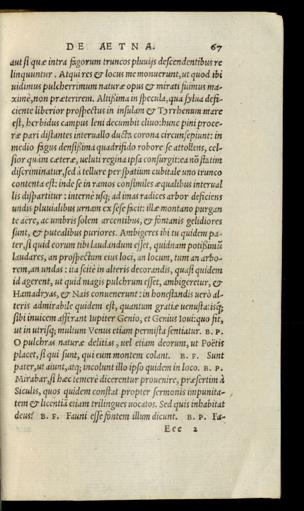 DE AETNA. 67
aut si quæ intra fagorum truncos pluuijs descendentibus re
linquuntur. Atqui res & locus me monuerunt, ut quod ibi
uidimus pulcherrimum naturæ opus & mirati suimus ma-
xime, non præterirem. Altissima in specula, qua sylua defi-
ciente liberior prospectus in insulam & Tyrrhenum mare
est, herbidus campus leni decumbit cliuo: hunc pini proce-
ræ pari distantes interuallo ducta corona circunsepiunt: in
medio fagus densissima quadrifido robore se attollens, cel-
sior quàm cæteræ, ueluti regina ipsa consurgit: ea nō statim
discriminatur, sed à tellure per spatium cubitale uno trunco
contenta est: inde se in ramos consimiles æqualibus interual
lis dispartitur: interne usq; ad imas radices arbor deficiens
undis pluuialibus urnam ex sese facit: illæ montano purgan
te aëre, ac umbris solem arcentibus, & fontanis gelidiores
sunt, & putealibus puriores. Ambigeres ibi tu quidem pa-
ter, si quid eorum tibi laudandum esset, quidnam potissimū
laudares, an prospectum eius loci, an locum, tum an arbo-
rem, an undas: ita scitè in alteris decorandis, quasi quidem
id agerent, ut quid magis pulchrum esset, ambigeretur, &
Hamadryas, & Nais conuenerunt: in honestandis uerò al-
teris admirabile quidem est, quantum gratiæ uenustatisq;
sibi inuicem afferant Iupiter Genio, et Genius Ioui: quo fit,
ut in utrisq; multum Venus etiam permista sentiatur. B. P.
O pulchras naturæ delitias, uel etiam deorum, ut Poëtis
placet, si qui sunt, qui eum montem colant. B. F. Sunt
pater, ut aiunt, atq; incolunt illo ipso quidem in loco. B. P.
Mirabar, si hæc temerè dicerentur prouenire, præsertim à
Siculis, quos quidem constat propter sermonis impunita-
tem & licentiā etiam trilingues uocatos. Sed quis inhabitat
deus? B. F. Fauni esse fontem illum dicunt. B. P. Fa-
Eee 2